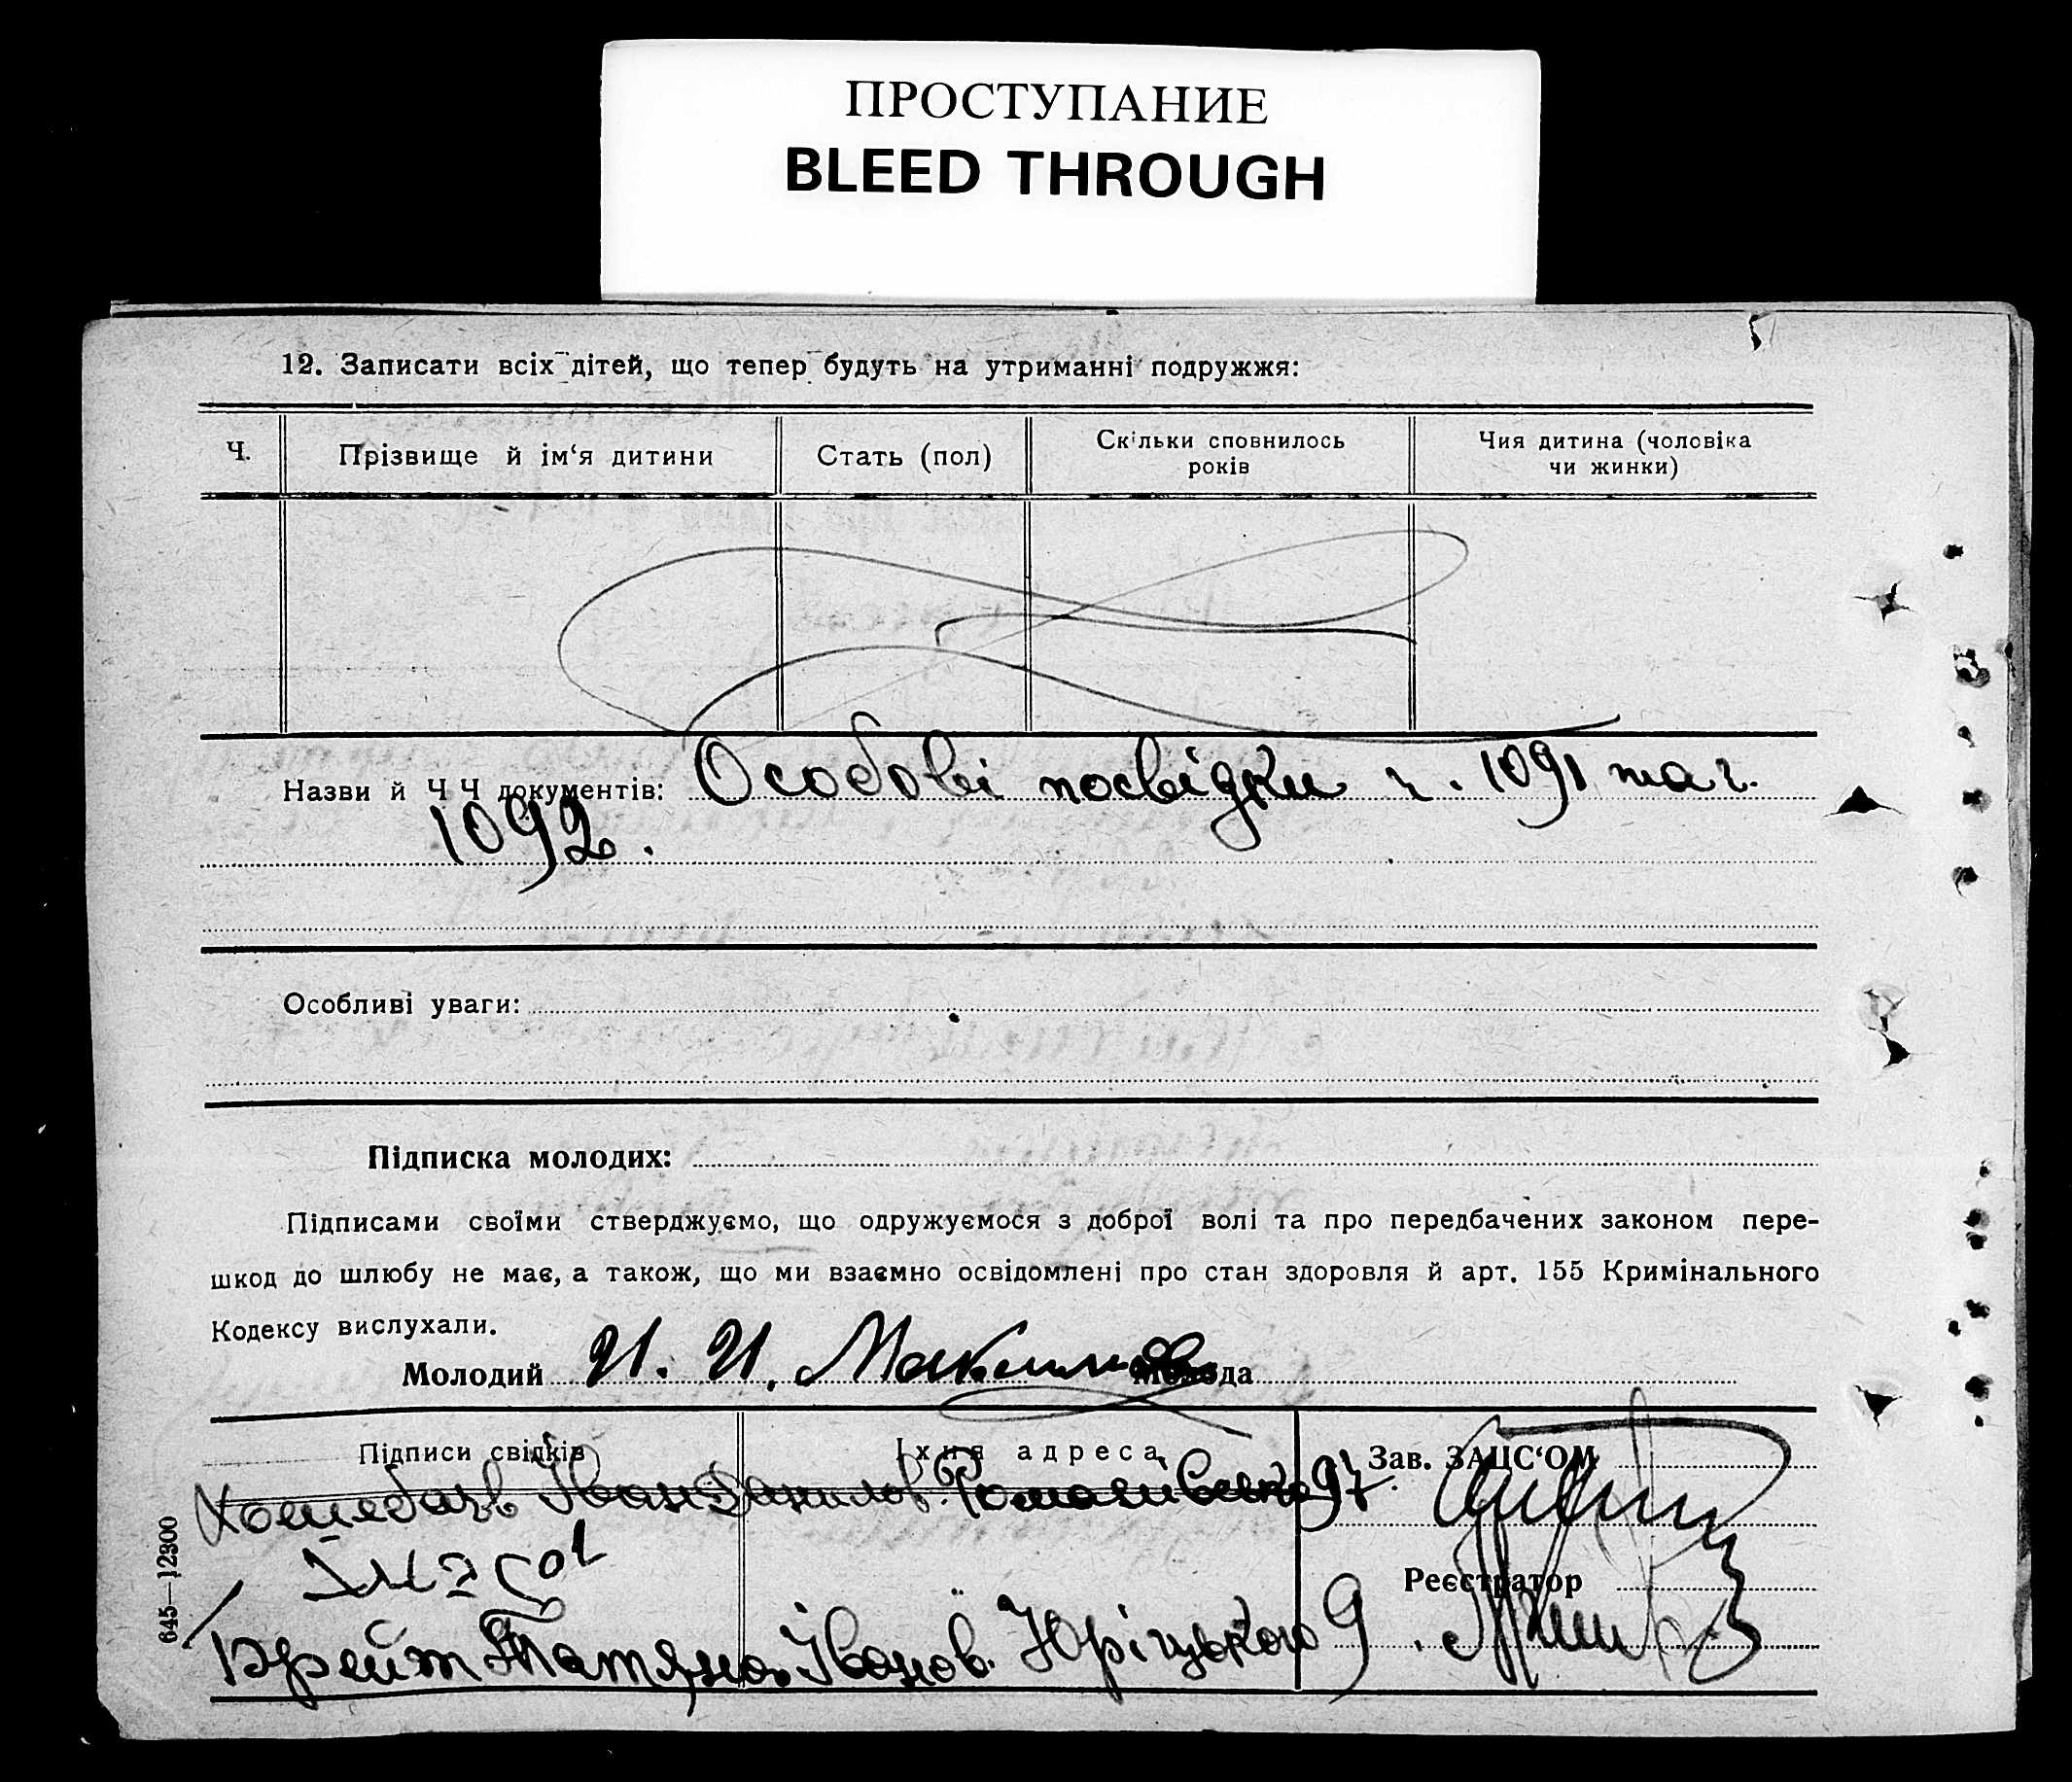 ПРОСТУПАНИЕ
BLEED THROUGH
12. Записати всіх дітей, що тепер будуть на утриманні подружжя:
Ч.
Прізвище й ім‘я дитини
Стать (пол)
Скільки сповнилось
років
Чия дитина (чоловіка
чи жинки)
Назви й Ч Ч документів: Особові посвідки ч. 1091 та ч.
1092.
Особливі уваги:
Підписка молодих:
Підписами своїми стверджуємо, що одружуємося з доброї волі та про передбачених законом пере-
шкод до шлюбу не має, а також, що ми взаємно освідомлені про стан здоровля й арт. 155 Кримінального
Кодексу вислухали.
Молодий И. И. Молода
Підписи свідків
Їхня адреса
Зав. ЗАЦС‘ОМ
Іван Данилов. 97.
Реєстратор
Татяна Іванов. Юріцького 9
645—12300